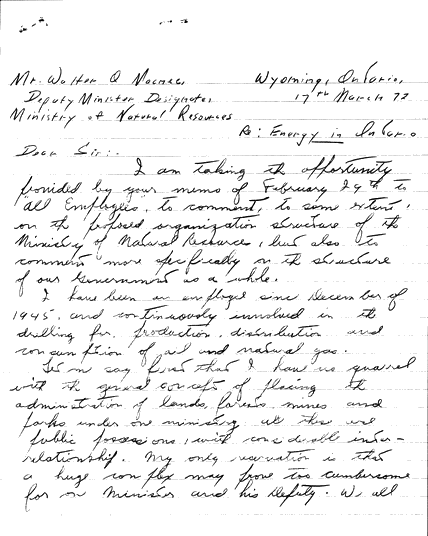 Mr. Walter Q Macnee, Wyoming, Ontario,
Deputy Minister Designate, 17th March 72
Ministry of Natural Resources
Re: Energy in Ontario
Dear Sir:-
I am taking the opportunity
provided by your memo of February 29th to
"all Employees", to comment, to some extent,
on the proposed organization structure of the
Ministry of Natural Resources, but also to
comment more specifically on the structure
of our Government as a whole.
I have been an employee since December of
1945, and continuously involved in the
drilling for, production, distribution and
consumption of oil and natural gas.
Let me say first that I have no quarrel
with the general concept of placing the
administration of lands, forests, mines and
parks under one ministry as these are
public possessions, with considerable inter-
relationship. My only reservation is that
a huge complex may prove too cumbersome
for one Minister and his Deputy. We all